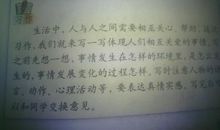 习作
生活中,人与人之间需要相互关心、帮助,
习作,我们就来写一写体现人们相互关爱的事情,写
之前先想一想,事情发生在怎样的环境里,是怎么发
生的,事情发展变化的过程怎样,写时注意人物的
言、动作、心理活动等,要表达真情实感,写完
以和同学交换意见。